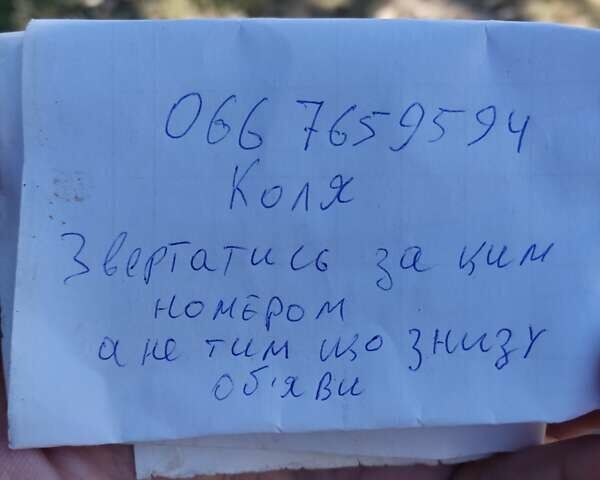 066 7659594
Коля
Звертатись за цим
номером
а не тим що знизу
об'яви